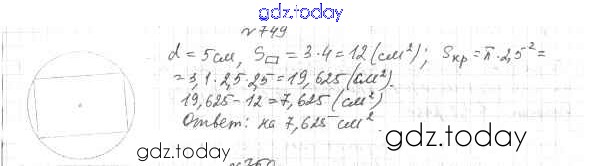 gdz.today
№749
d = 5 см, S▭ = 3·4 = 12 (см²); Sкр = π·2,5² =
= 3,1·2,5·2,5 = 19,625 (см²).
19,625 - 12 = 7,625 (см²)
Ответ: на 7,625 см²
gdz.today
gdz.today
№750